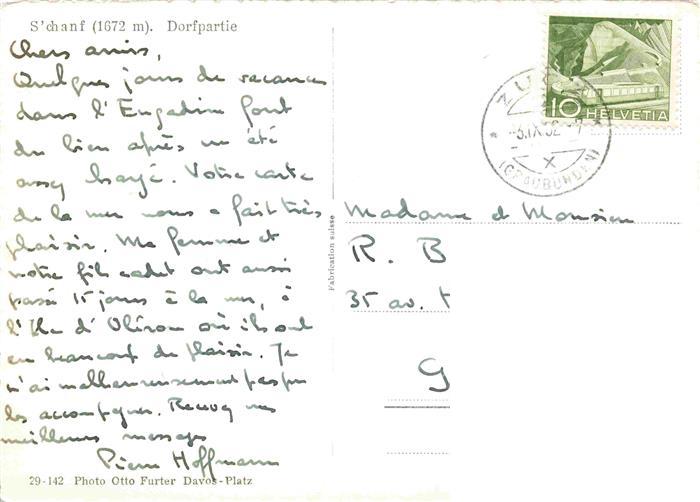 S'chanf (1672 m). Dorfpartie
Chers amis,
Quelques jours de vacances
dans l'Engadine font
du bien après un été
assez chargé. Votre carte
de la mer nous a fait très
plaisir. Ma femme et
notre fils cadet ont aussi
passé 15 jours à la mer, à
l'Ile d'Oléron où ils ont
eu beaucoup de plaisir. Je
n'ai malheureusement pas pu
les accompagner. Recevez nos
meilleurs messages
Pierre Hoffmann
29-142 Photo Otto Furter Davos-Platz
Fabrication suisse
10 HELVETIA
ZUOZ
-3.IX.52.-7
X
(GRAUBÜNDEN)
Madame et Monsieur
R. B
35 av.
G